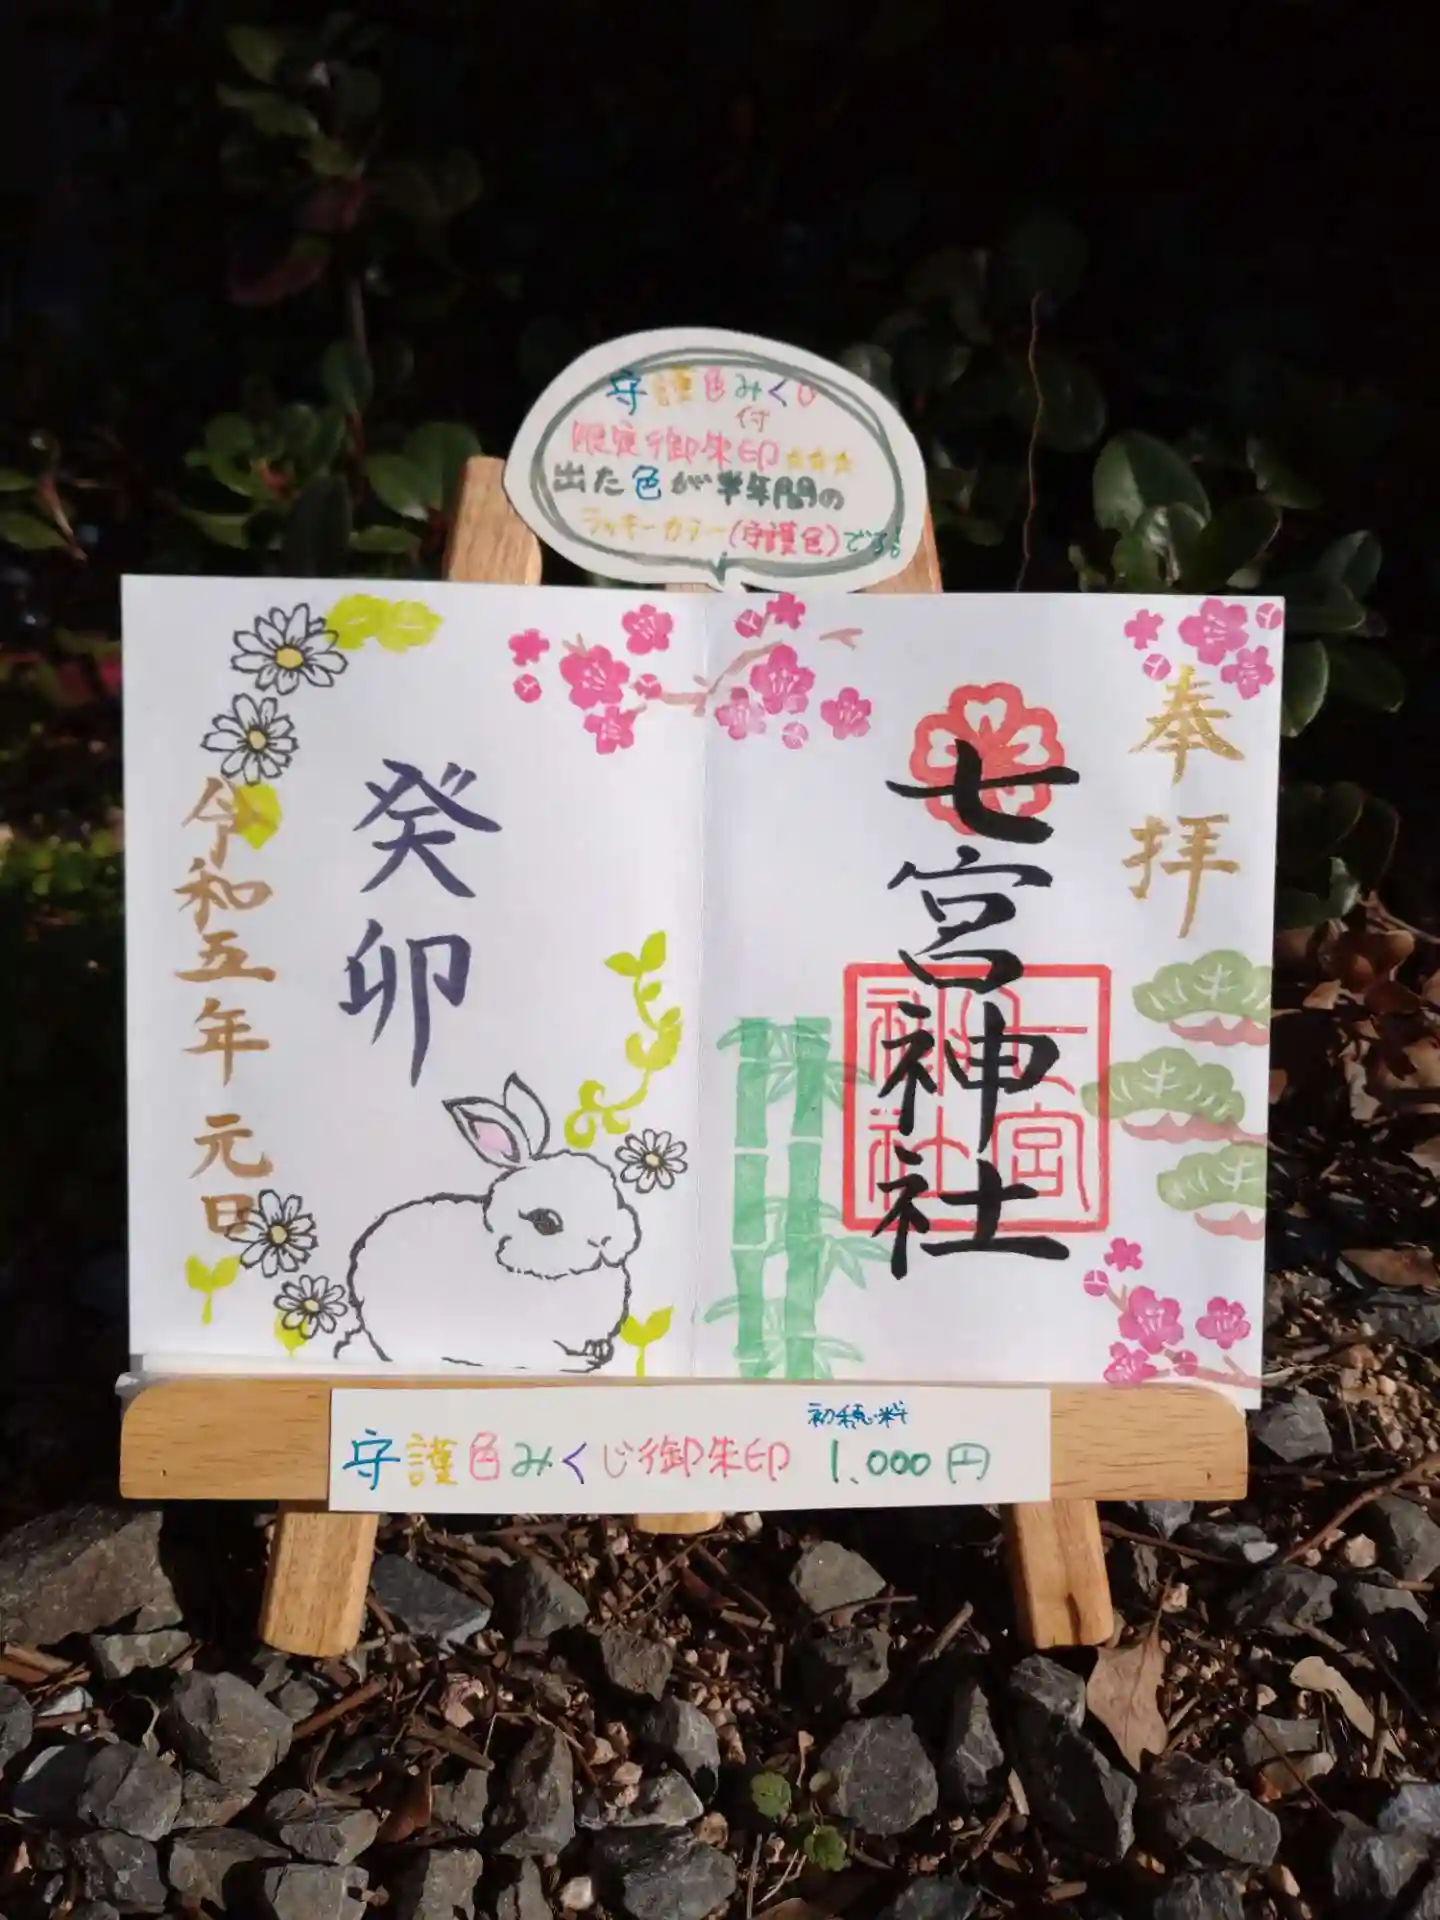 守護色みくじ
付
限定御朱印☆☆☆
出た色が半年間の
ラッキーカラー(守護色)です!
奉拝
七宮神社
癸卯
令和五年 元日
初穂料
守護色みくじ御朱印 1,000円